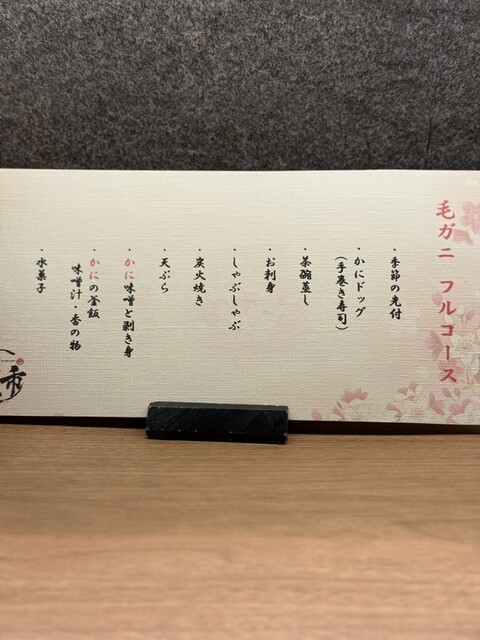 毛ガニ フルコース
・季節の先付
・かにドッグ
（手巻き寿司）
・茶碗蒸し
・お刺身
・しゃぶしゃぶ
・炭火焼き
・天ぷら
・かに味噌と剥き身
・かにの釜飯
味噌汁・香の物
・水菓子